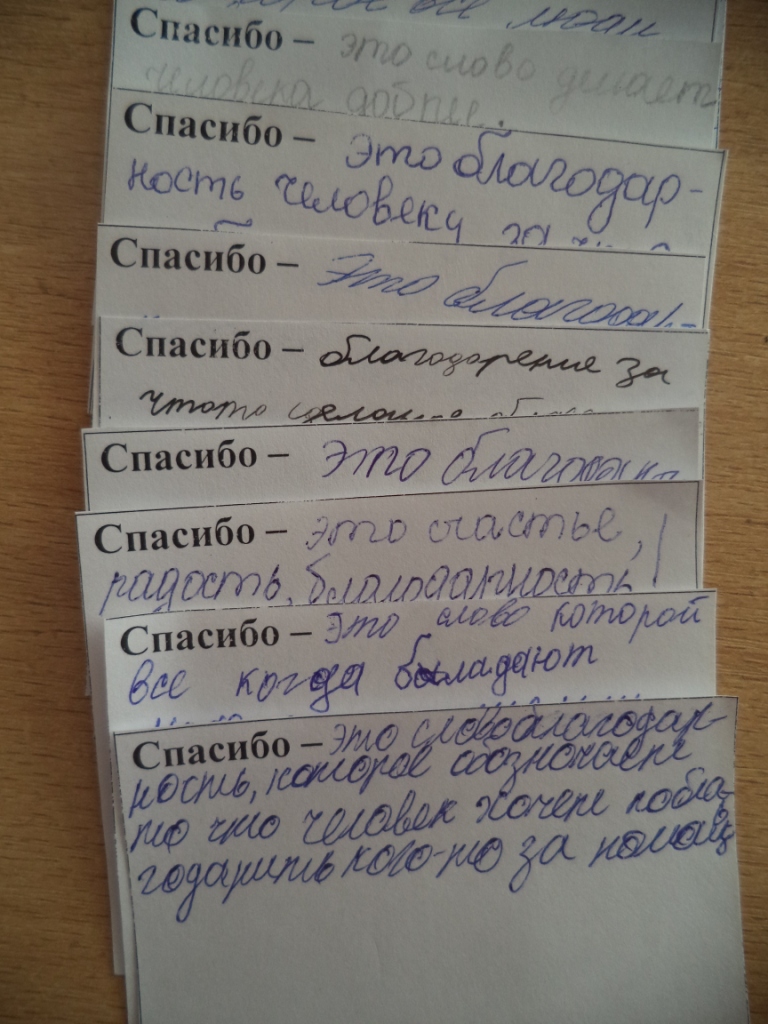 все люди
Спасибо – это слово делает
человека добрее.
Спасибо – это благодар-
ность человеку за
Спасибо – Это благода
Спасибо – благодарение за
чтото
Спасибо – это
Спасибо – это счастье,
радость, благодарность!
Спасибо – это слово которой
все когда бкладают
Спасибо – это словоблагодар-
ность, которое обозначает
то что человек хочет побла-
годарить кого-то за помощ